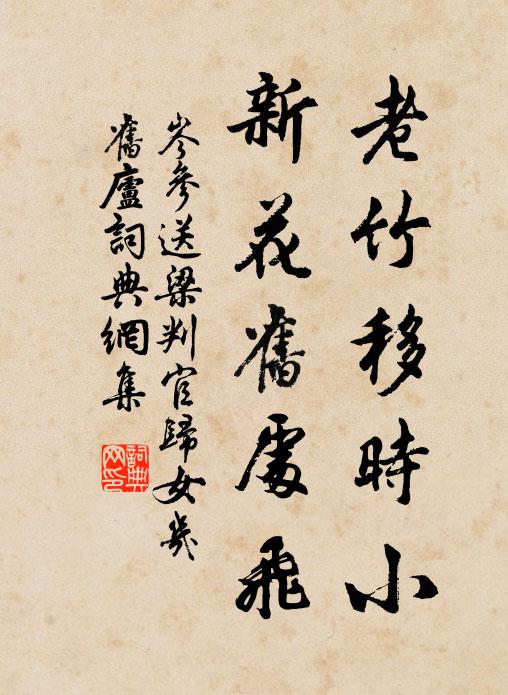 老竹移時小
新花舊處飛
岑參送梁判官歸女几
舊廬詞典網集
詞典网印